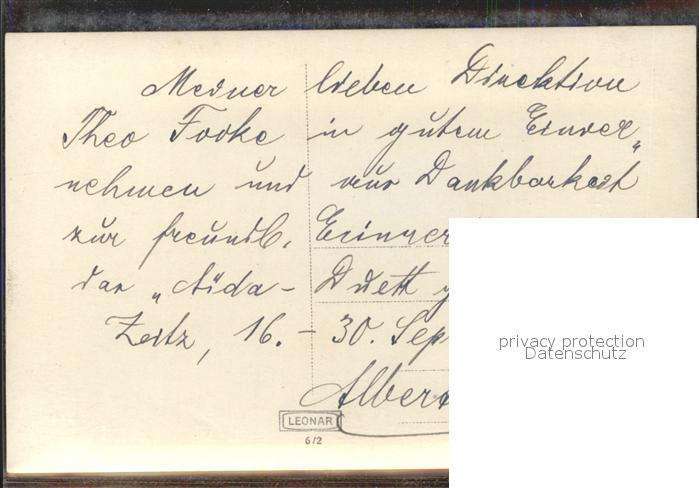 Meiner lieben Direktion
Theo Fooke in gutem Einver„
nehmen und aus Dankbarkeit
zur freundl. Erinner
das „Aida-Duett
Zeitz, 16. – 30. Sep
Alber
LEONAR
6/2
privacy protection
Datenschutz